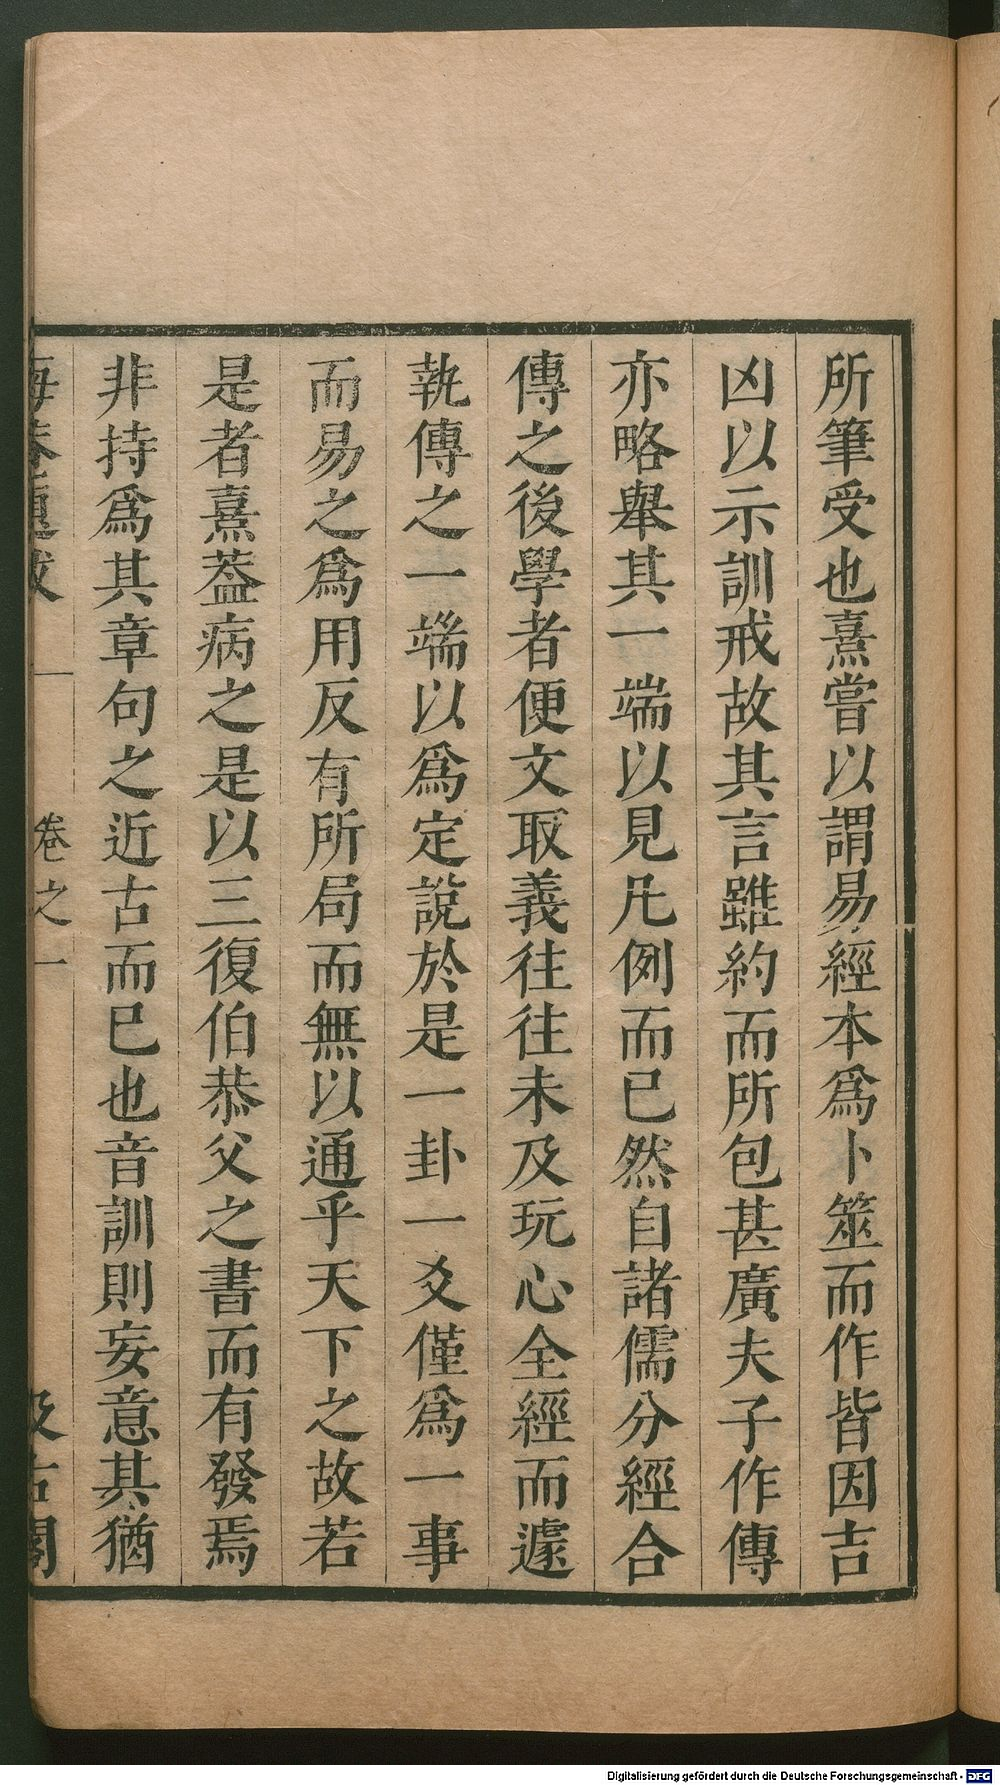 所筆受也熹嘗以謂易經本爲卜筮而作皆因吉
凶以示訓戒故其言雖約而所包甚廣夫子作傳
亦略舉其一端以見凡例而已然自諸儒分經合
傳之後學者便文取義往往未及玩心全經而遽
執傳之一端以爲定說於是一卦一爻僅爲一事
而易之爲用反有所局而無以通乎天下之故若
是者熹葢病之是以三復伯恭父之書而有發焉
非持爲其章句之近古而已也音訓則妄意其猶
海菴題䟦 卷之一 汲古閣
Digitalisierung gefördert durch die Deutsche Forschungsgemeinschaft - DFG